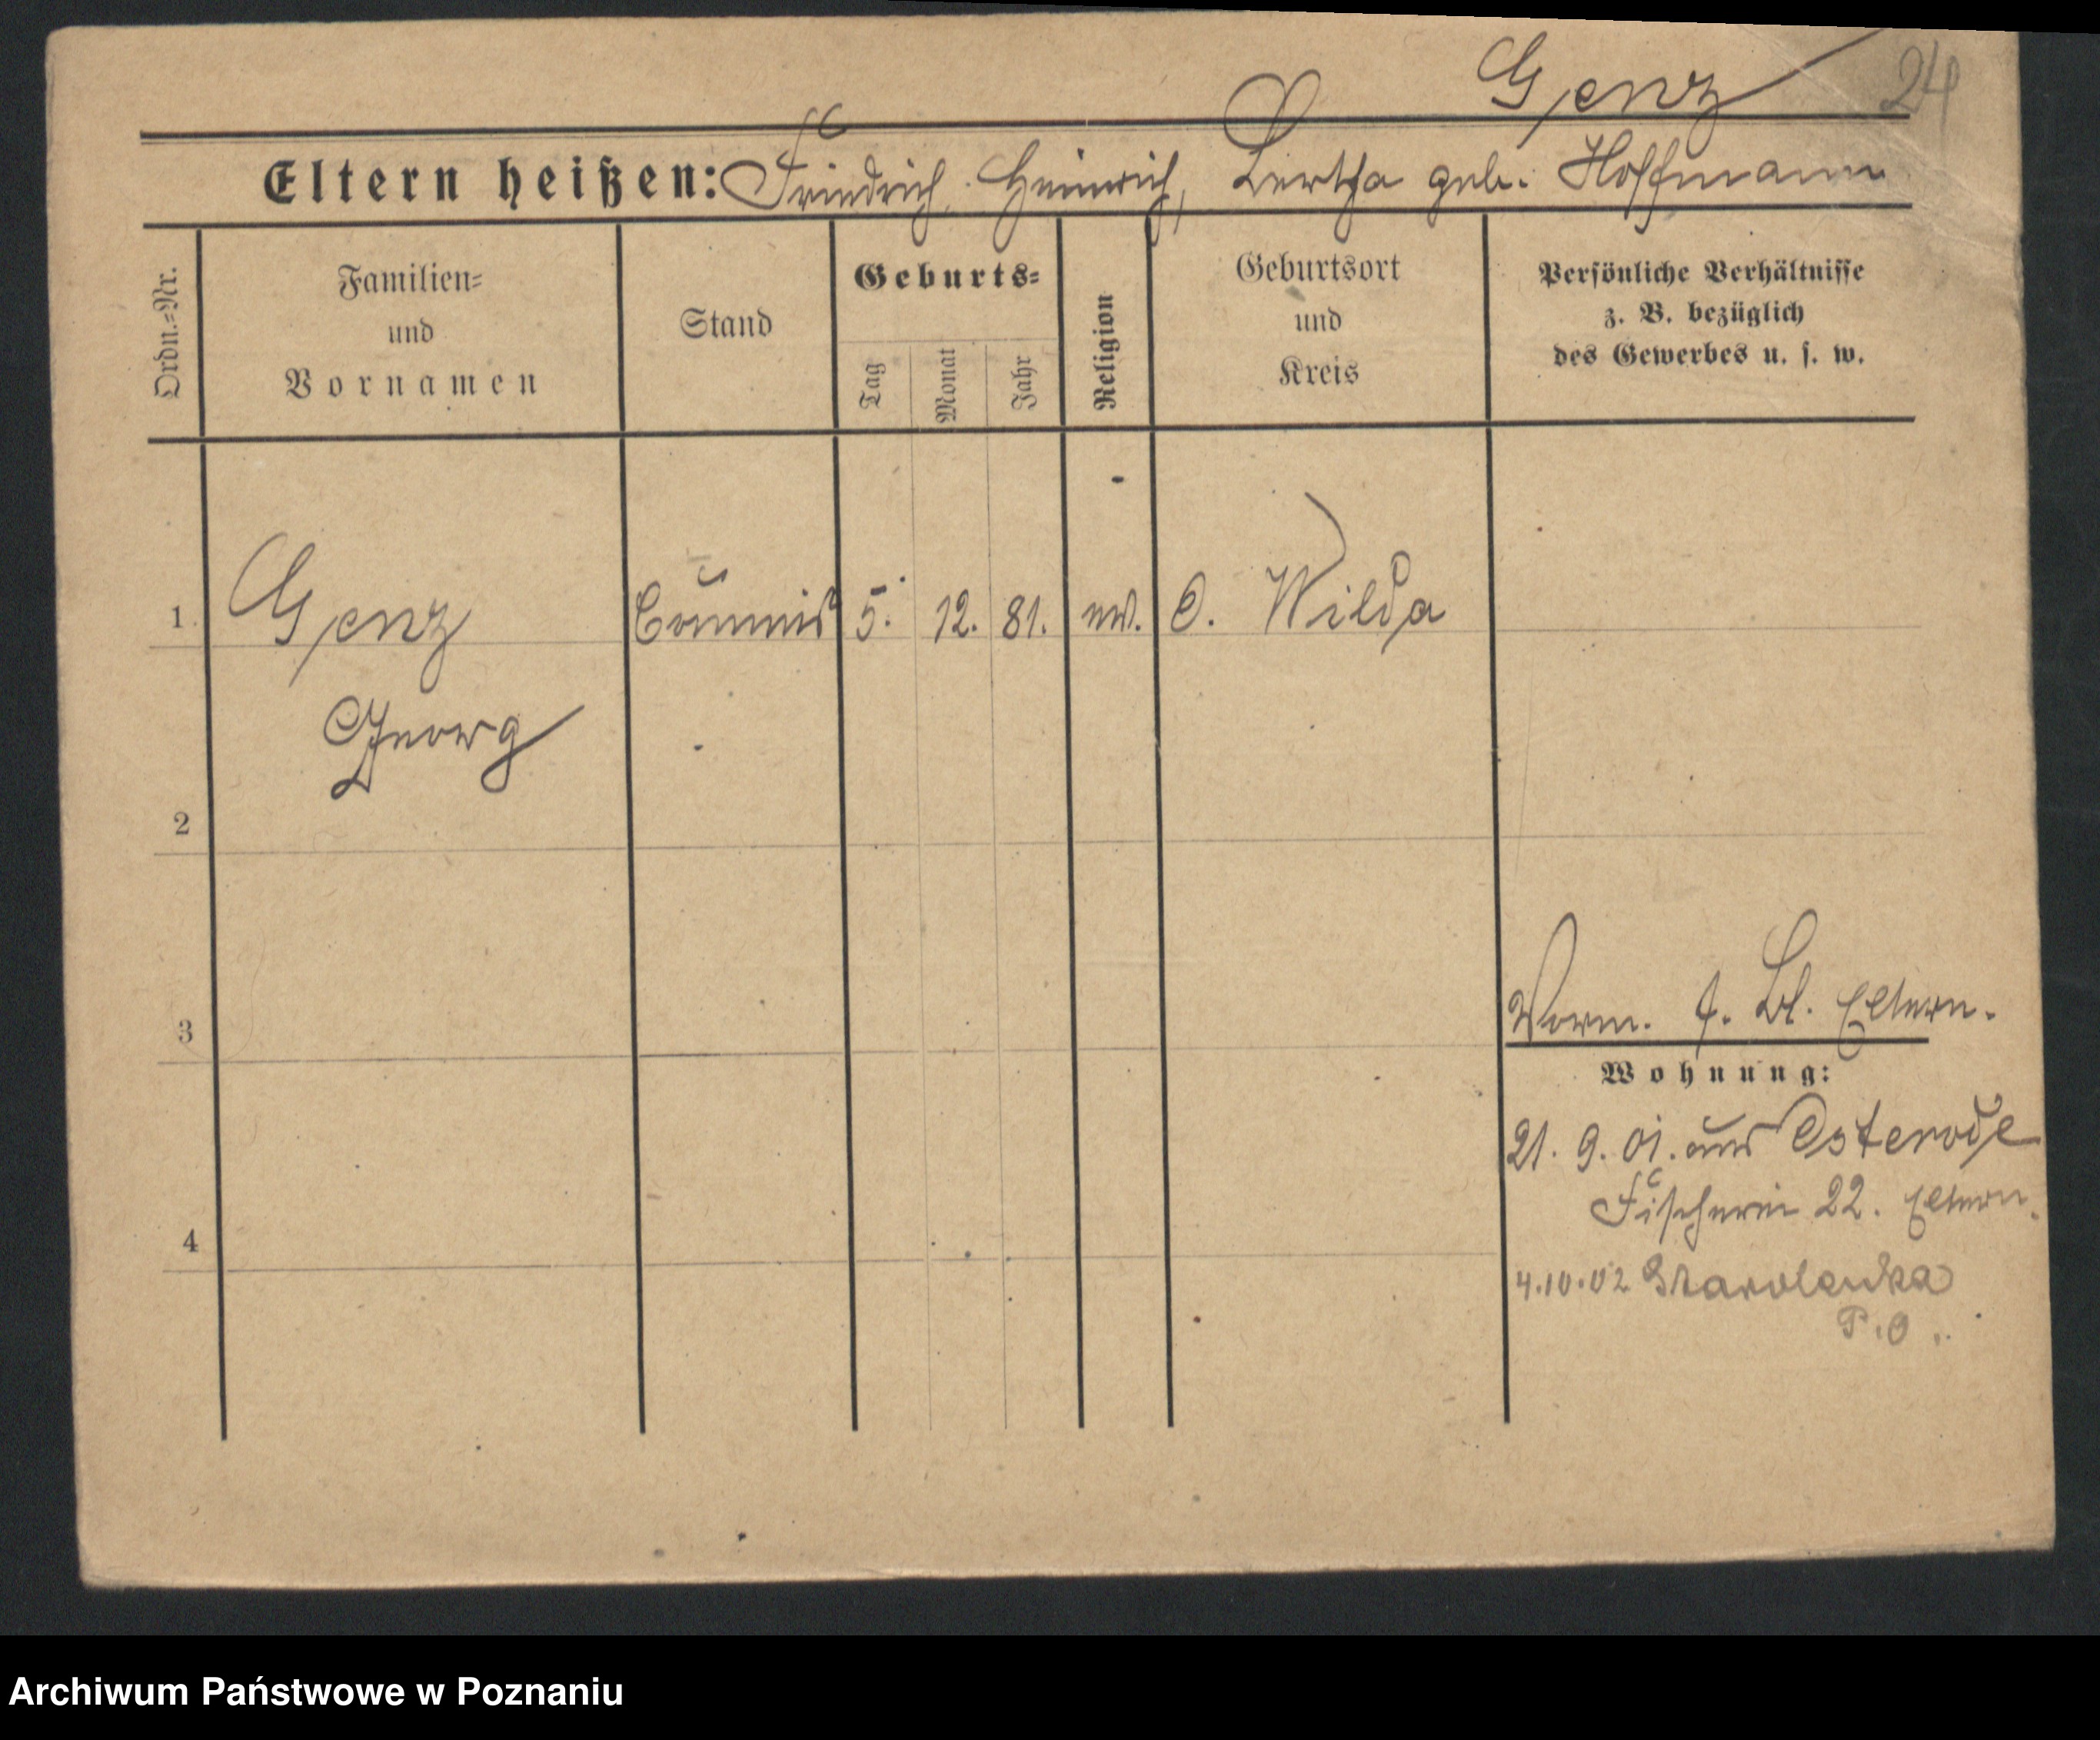 Genz 24
Eltern heißen: Friedrich, Heinrich, Bertha geb. Hoffmann
Ordn.=Nr.
Familien=
und
Vornamen
Stand
Geburts=
Tag
Monat
Jahr
Religion
Geburtsort
und
Kreis
Persönliche Verhältnisse
z. B. bezüglich
des Gewerbes u. s. w.
1. Genz Commis 5. 12. 81. ev. O. Wilda
Georg
2
3
Vorm. f. Bl. Eltern.
Wohnung:
21. 9. 01. aus Osterode
Fischerei 22. Eltern.
4
4.10.02 Starolenka
P.O.
Archiwum Państwowe w Poznaniu